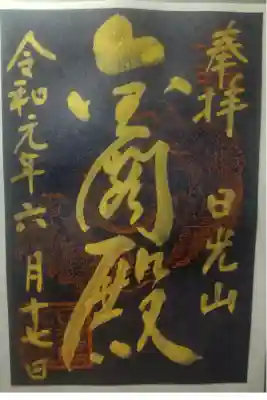 奉拝　日光山
殿
令和元年六月十七日